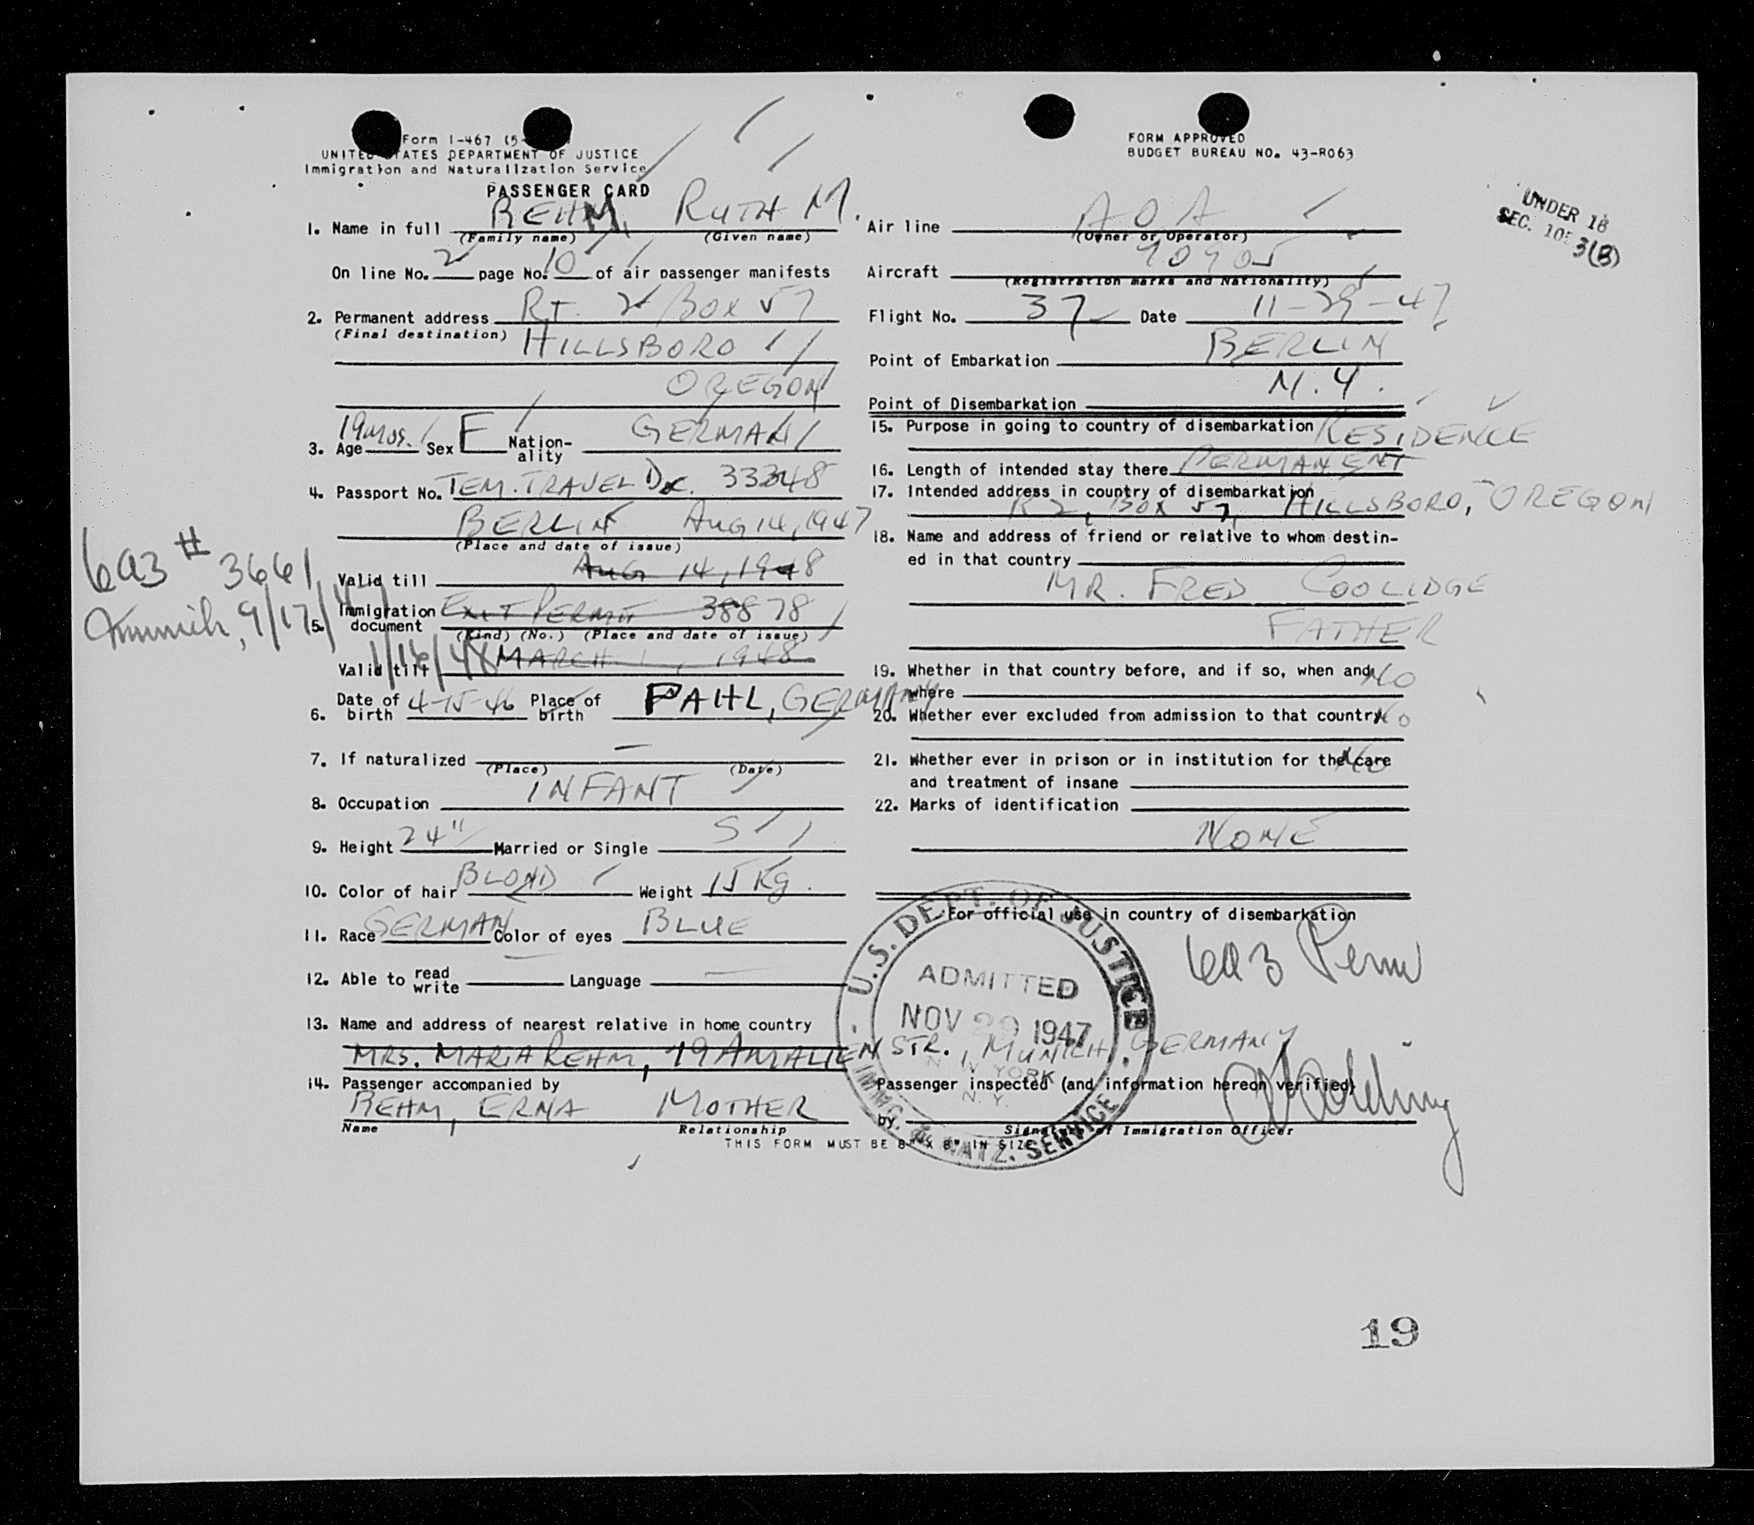 Form I-467 (5-
UNITED STATES DEPARTMENT OF JUSTICE
Immigration and Naturalization Service
PASSENGER CARD
FORM APPROVED
BUDGET BUREAU NO. 43-R063
UNDER 16
SEC. 10 3(B)
1. Name in full REHM, RUTH M.
(Family name) (Given name)
On line No. 2 page No. 10 of air passenger manifests
2. Permanent address RT. 2 BOX 57
(Final destination) HILLSBORO
OREGON
3. Age 19 MOS. Sex F Nation-ality GERMAN
4. Passport No. TEM. TRAVEL DOC. 33348
BERLIN AUG 14, 1947
(Place and date of issue)
Valid till AUG 14, 1948
6a3 # 3661
Munich, 9/17/47
5. Immigration document EXIT PERMIT 38878
(Kind) (No.) (Place and date of issue)
1/16/48
Valid till MARCH 1, 1948
6. Date of birth 4-15-46 Place of birth PAHL, GERMANY
7. If naturalized —
(Place) (Date)
8. Occupation INFANT
9. Height 24" Married or Single S
10. Color of hair BLOND Weight 15 Kg.
11. Race GERMAN Color of eyes BLUE
12. Able to read write — Language —
13. Name and address of nearest relative in home country
MRS. MARIA REHM, 79 AMALIEN STR., MUNICH, GERMANY
14. Passenger accompanied by
REHM, ERNA MOTHER
Name Relationship
THIS FORM MUST BE 8" X 8" IN SIZE
Air line AOA
(Owner or Operator)
Aircraft 90905
(Registration marks and Nationality)
Flight No. 37 Date 11-29-47
Point of Embarkation BERLIN
Point of Disembarkation N.Y.
15. Purpose in going to country of disembarkation RESIDENCE
16. Length of intended stay there PERMANENT
17. Intended address in country of disembarkation
R2, BOX 57, HILLSBORO, OREGON
18. Name and address of friend or relative to whom destin-
ed in that country
MR. FRED COOLIDGE
FATHER
19. Whether in that country before, and if so, when and where NO
20. Whether ever excluded from admission to that country NO
21. Whether ever in prison or in institution for the care
and treatment of insane NO
22. Marks of identification
NONE
For official use in country of disembarkation
6a3 Perm
U.S. DEPT. OF JUSTICE
ADMITTED
NOV 29 1947
NEW YORK
N.Y.
IMMG. & NATZ. SERVICE
Passenger inspected (and information hereon verified)
by
Signature of Immigration Officer
19